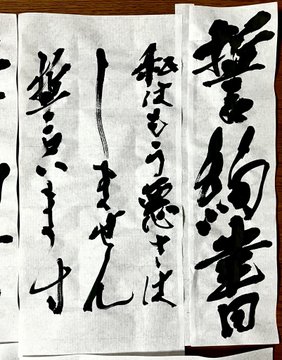 誓約書
私はもう悪さは
しません
誓います